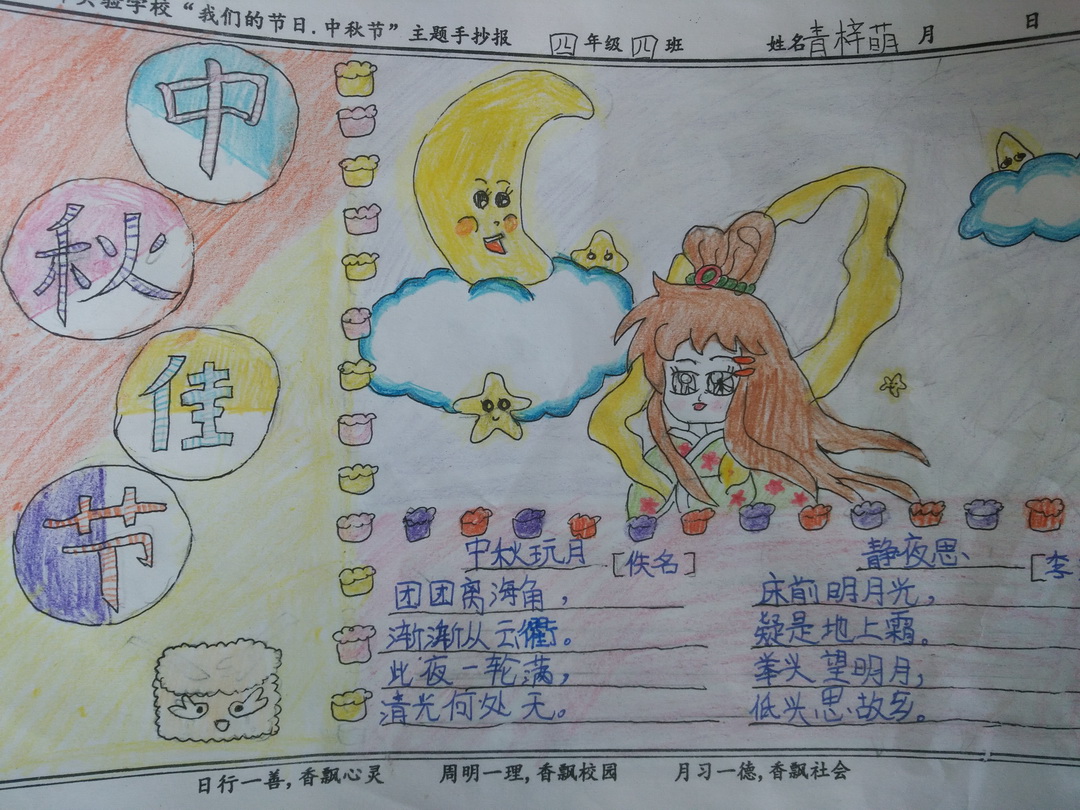 实验学校“我们的节日.中秋节”主题手抄报 四年级四班 姓名青梓萌 月 日
中
秋
佳
节
中秋玩月 [佚名]
团团离海角，
渐渐从云衢。
此夜一轮满，
清光何处无。
静夜思 [李
床前明月光，
疑是地上霜。
举头望明月，
低头思故乡。
日行一善,香飘心灵 周明一理,香飘校园 月习一德,香飘社会